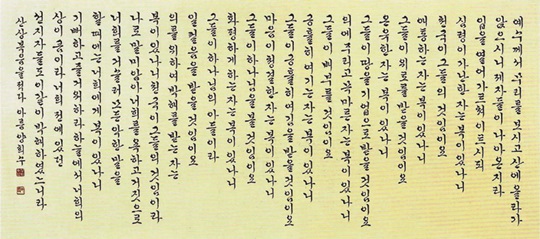 예수께서 무리를 보시고 산에 올라가
앉으시니 제자들이 나아온지라
입을 열어 가르쳐 이르시되
심령이 가난한 자는 복이 있나니
천국이 그들의 것임이요
애통하는 자는 복이 있나니
그들이 위로를 받을 것임이요
온유한 자는 복이 있나니
그들이 땅을 기업으로 받을 것임이요
의에 주리고 목마른 자는 복이 있나니
그들이 배부를 것임이요
긍휼히 여기는 자는 복이 있나니
그들이 긍휼히 여김을 받을 것임이요
마음이 청결한 자는 복이 있나니
그들이 하나님을 볼 것임이요
화평하게 하는 자는 복이 있나니
그들이 하나님의 아들이라
일컬음을 받을 것임이요
의를 위하여 박해를 받은 자는
복이 있나니 천국이 그들의 것임이라
나로 말미암아 너희를 욕하고 거짓으로
너희를 거슬러 모든 악한 말을
할 때에는 너희에게 복이 있나니
기뻐하고 즐거워하라 하늘에서 너희의
상이 큼이라 너희 전에 있던
선지자들도 이같이 박해하였느니라
산상복음을 적다 아름 양희수